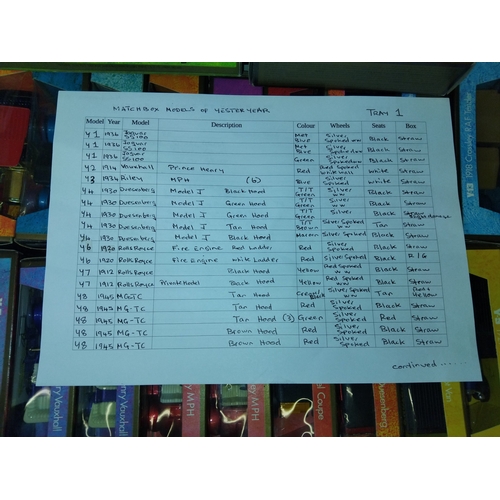 MATCHBOX MODELS OF YESTERYEAR TRAY 1
Model Year Model Description Colour Wheels Seats Box
Y1 1936 Jaguar SS100 Met Blue Silver Spoked ww Black Straw
Y1 1936 Jaguar SS100 Met Blue Silver Black Straw
Y1 1936 Jaguar SS100 Green Silver Black Straw
Y2 1914 Vauxhall Prince Henry Red Red Spoked White wall White Straw
Y3 1934 Riley MPH (6) Blue Silver Spoked White Straw
Y4 1930 Duesenberg Model J Black Hood T/T Green Silver ww Black Straw
Y4 1930 Duesenberg Model J Green Hood T/T Green Silver ww Black Straw
Y4 1930 Duesenberg Model J Green Hood T/T Green Silver Black Straw
Y4 1930 Duesenberg Model J Tan Hood T/T Brown Silver Spoked ww Tan Straw
Y4 1930 Duesenberg Model J Black Hood Maroon Silver Spoked Black Straw
Y6 1920 Rolls Royce Fire Engine Brown Ladder Red Silver Spoked Black Straw
Y6 1920 Rolls Royce Fire Engine White Ladder Red Silver Spoked Black R/G
Y7 1912 Rolls Royce Black Hood Yellow Red Spoked ww Black Straw
Y7 1912 Rolls Royce Black Hood Yellow Red Spoked ww Black Straw
Y8 1945 MG-TC Tan Hood Cream/ Silver Spoked ww Tan Red + Yellow
Y8 1945 MG-TC Tan Hood Red Silver Spoked Black Straw
Y8 1945 MG-TC Tan Hood (3) Green Silver Spoked Red Straw
Y8 1945 MG-TC Brown Hood Red Silver Spoked Black Straw
Y8 1945 MG-TC Brown Hood Red Silver Spoked Black Straw
continued.....
Y13 1918 Crossley RAF Tender
Henry Vauxhall
ey MPH
Coupe
Duesenberg